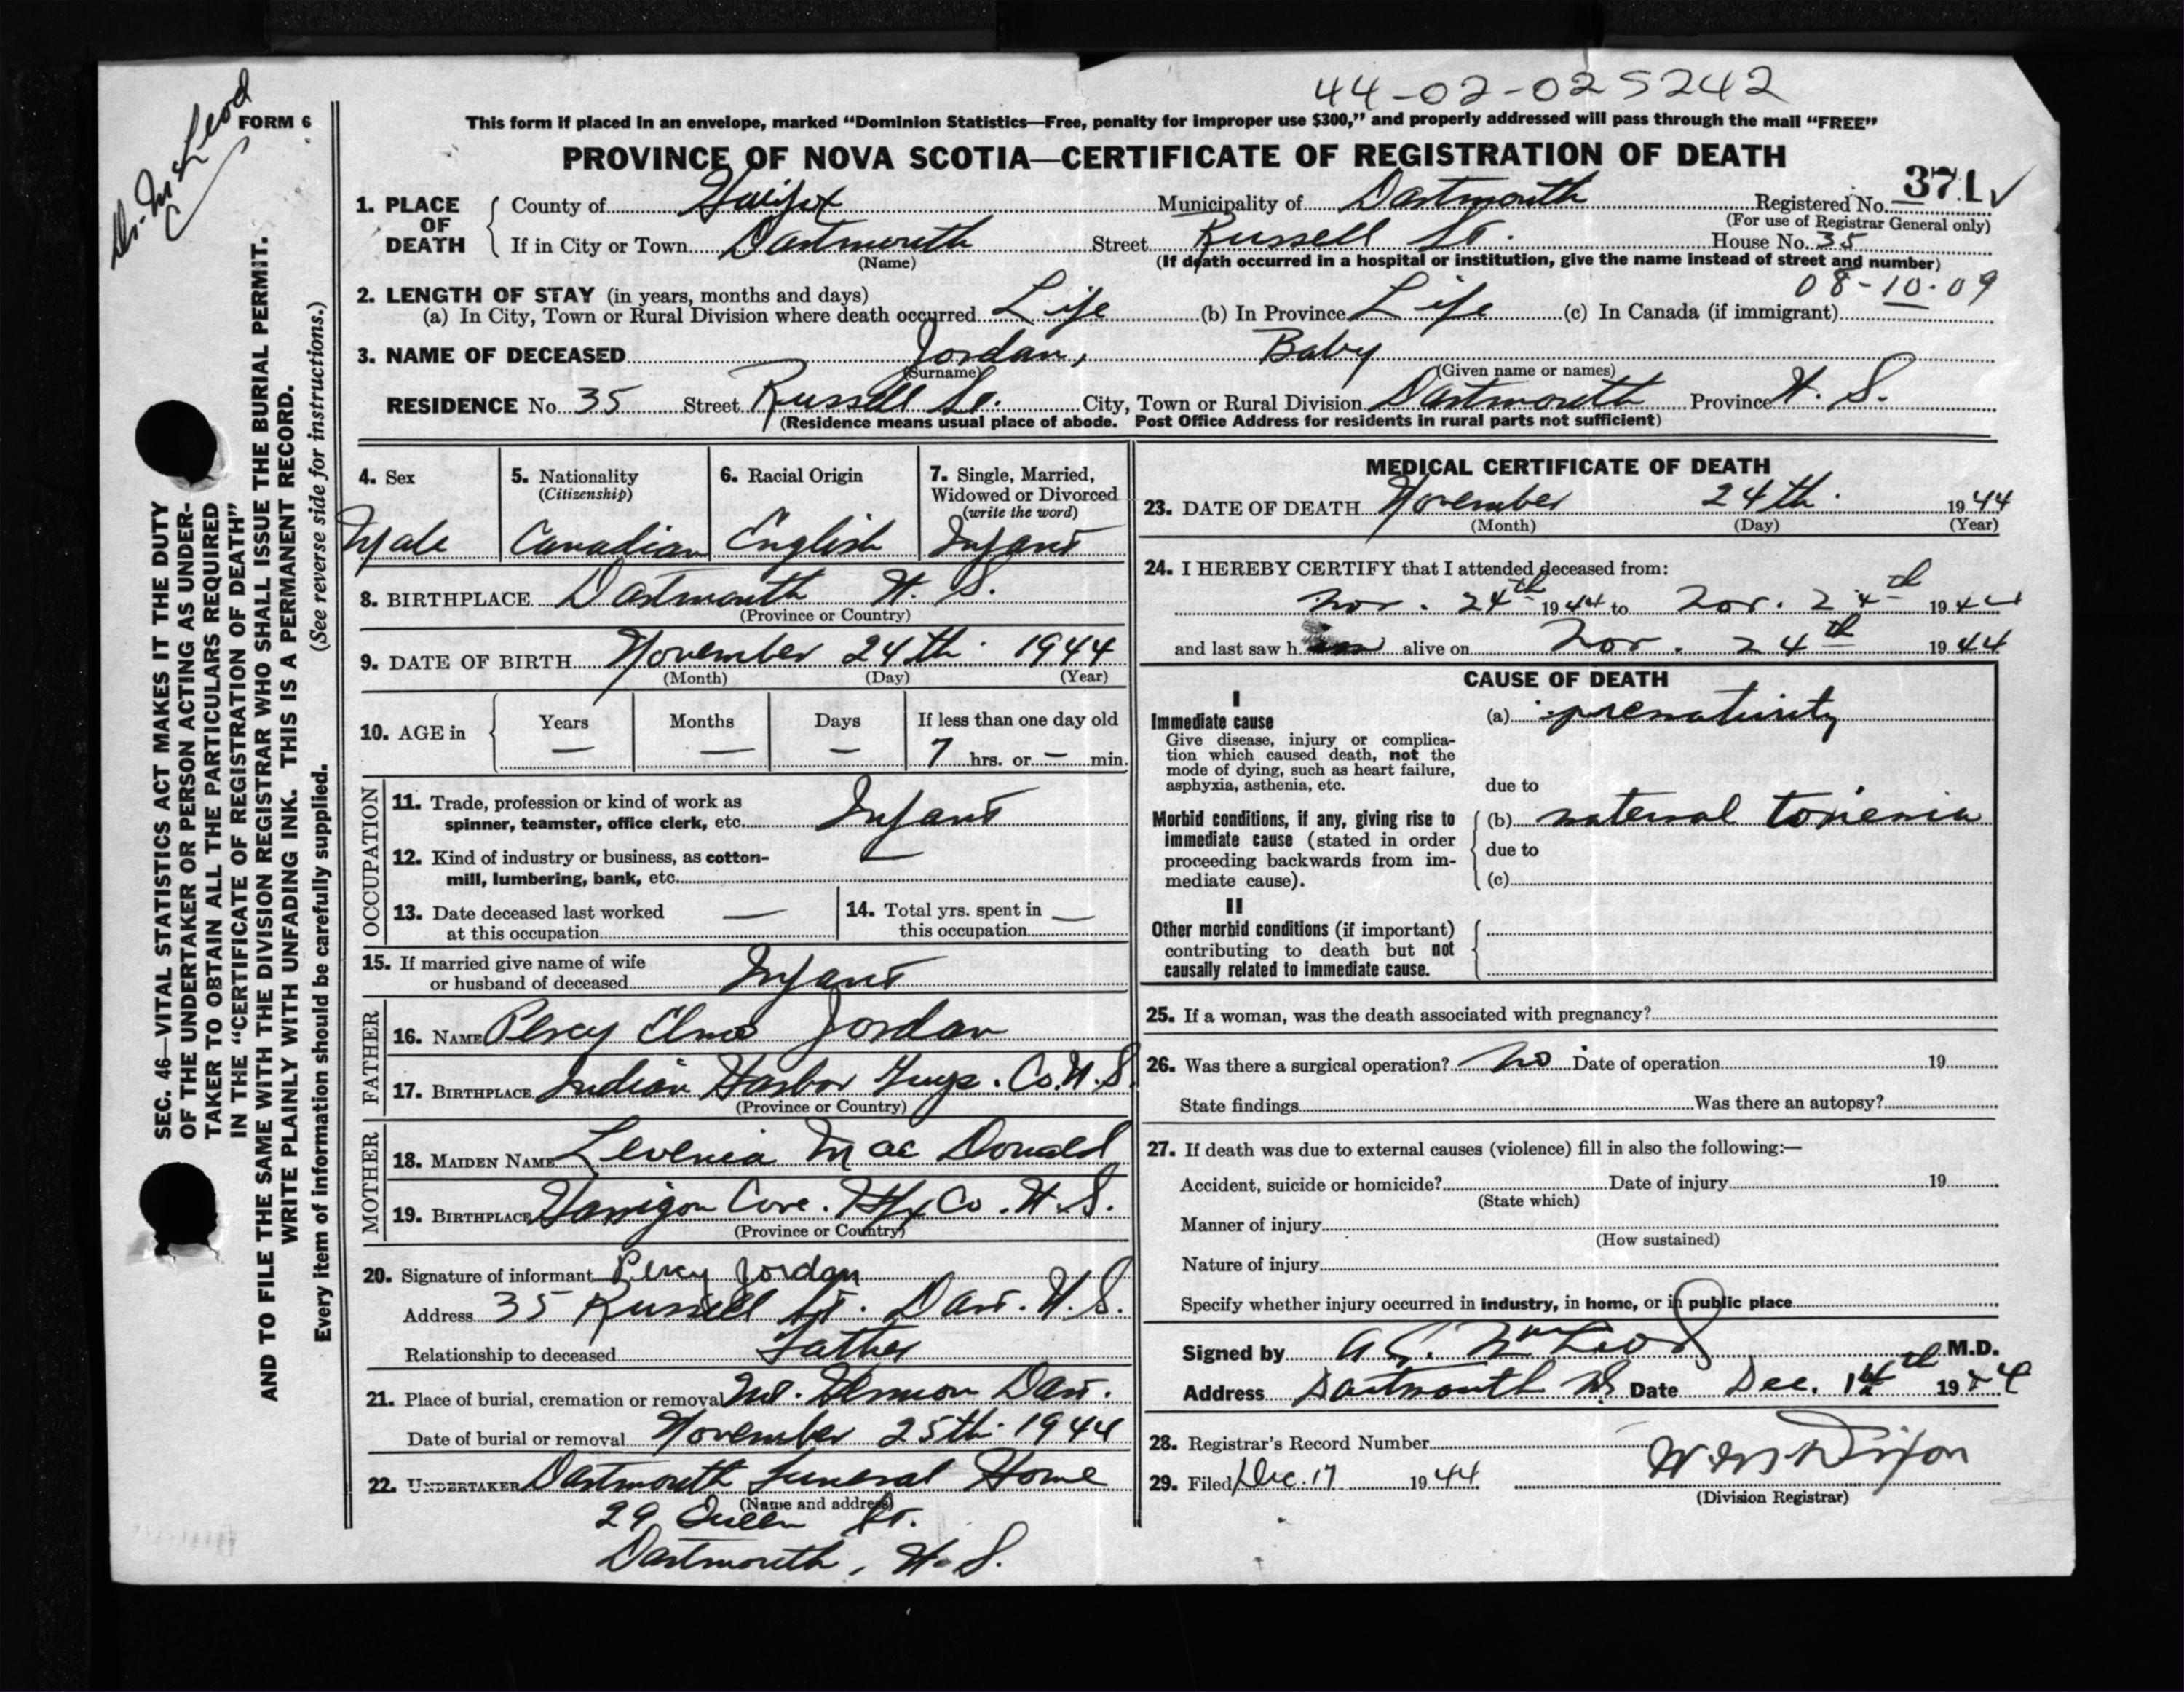 44-02-025242
Dr. McLeod
FORM 6
This form if placed in an envelope, marked “Dominion Statistics—Free, penalty for improper use $300,” and properly addressed will pass through the mail “FREE”
PROVINCE OF NOVA SCOTIA—CERTIFICATE OF REGISTRATION OF DEATH
371
1. PLACE OF DEATH
County of Halifax Municipality of Dartmouth Registered No.
(For use of Registrar General only)
If in City or Town Dartmouth Street Russell St. House No. 35
(Name) (If death occurred in a hospital or institution, give the name instead of street and number)
08-10-09
2. LENGTH OF STAY (in years, months and days)
(a) In City, Town or Rural Division where death occurred Life (b) In Province Life (c) In Canada (if immigrant)
3. NAME OF DECEASED Jordan, Baby
(Surname) (Given name or names)
RESIDENCE No. 35 Street Russell St. City, Town or Rural Division Dartmouth Province N. S.
(Residence means usual place of abode. Post Office Address for residents in rural parts not sufficient)
4. Sex Male
5. Nationality (Citizenship) Canadian
6. Racial Origin English
7. Single, Married, Widowed or Divorced (write the word) Infant
8. BIRTHPLACE Dartmouth N. S.
(Province or Country)
9. DATE OF BIRTH November 24th 1944
(Month) (Day) (Year)
10. AGE in Years — Months — Days — If less than one day old 7 hrs. or — min.
OCCUPATION
11. Trade, profession or kind of work as
spinner, teamster, office clerk, etc. Infant
12. Kind of industry or business, as cotton-
mill, lumbering, bank, etc.
13. Date deceased last worked
at this occupation —
14. Total yrs. spent in
this occupation —
15. If married give name of wife
or husband of deceased Infant
FATHER
16. NAME Percy Jordan
17. BIRTHPLACE Indian Harbor Guys. Co. N. S.
(Province or Country)
MOTHER
18. MAIDEN NAME Levenia Mac Donald
19. BIRTHPLACE Harrigan Cove. Hfx Co. N. S.
(Province or Country)
20. Signature of informant Percy Jordan
Address 35 Russell St. Dart. N. S.
Relationship to deceased Father
21. Place of burial, cremation or removal Mt. Hermon Dart.
Date of burial or removal November 25th 1944
22. UNDERTAKER Dartmouth Funeral Home
(Name and address)
29 Queen St.
Dartmouth, N. S.
MEDICAL CERTIFICATE OF DEATH
23. DATE OF DEATH November 24th 1944
(Month) (Day) (Year)
24. I HEREBY CERTIFY that I attended deceased from:
Nov. 24th 1944 to Nov. 24th 1944
and last saw h alive on Nov. 24th 1944
CAUSE OF DEATH
I
Immediate cause
Give disease, injury or complica-
tion which caused death, not the
mode of dying, such as heart failure,
asphyxia, asthenia, etc.
(a) prematurity
due to
Morbid conditions, if any, giving rise to
immediate cause (stated in order
proceeding backwards from im-
mediate cause).
(b) maternal toxemia
due to
(c)
II
Other morbid conditions (if important)
contributing to death but not
causally related to immediate cause.
25. If a woman, was the death associated with pregnancy?
26. Was there a surgical operation? no Date of operation 19
State findings Was there an autopsy?
27. If death was due to external causes (violence) fill in also the following:—
Accident, suicide or homicide? Date of injury 19
(State which)
Manner of injury
(How sustained)
Nature of injury
Specify whether injury occurred in industry, in home, or in public place
Signed by McLeod M.D.
Address Dartmouth NS Date Dec. 14th 1944
28. Registrar's Record Number
29. Filed Dec. 17 1944 Dixon
(Division Registrar)
SEC. 46—VITAL STATISTICS ACT MAKES IT THE DUTY
OF THE UNDERTAKER OR PERSON ACTING AS UNDER-
TAKER TO OBTAIN ALL THE PARTICULARS REQUIRED
IN THE “CERTIFICATE OF REGISTRATION OF DEATH”
AND TO FILE THE SAME WITH THE DIVISION REGISTRAR WHO SHALL ISSUE THE BURIAL PERMIT.
WRITE PLAINLY WITH UNFADING INK. THIS IS A PERMANENT RECORD.
Every item of information should be carefully supplied. (See reverse side for instructions.)